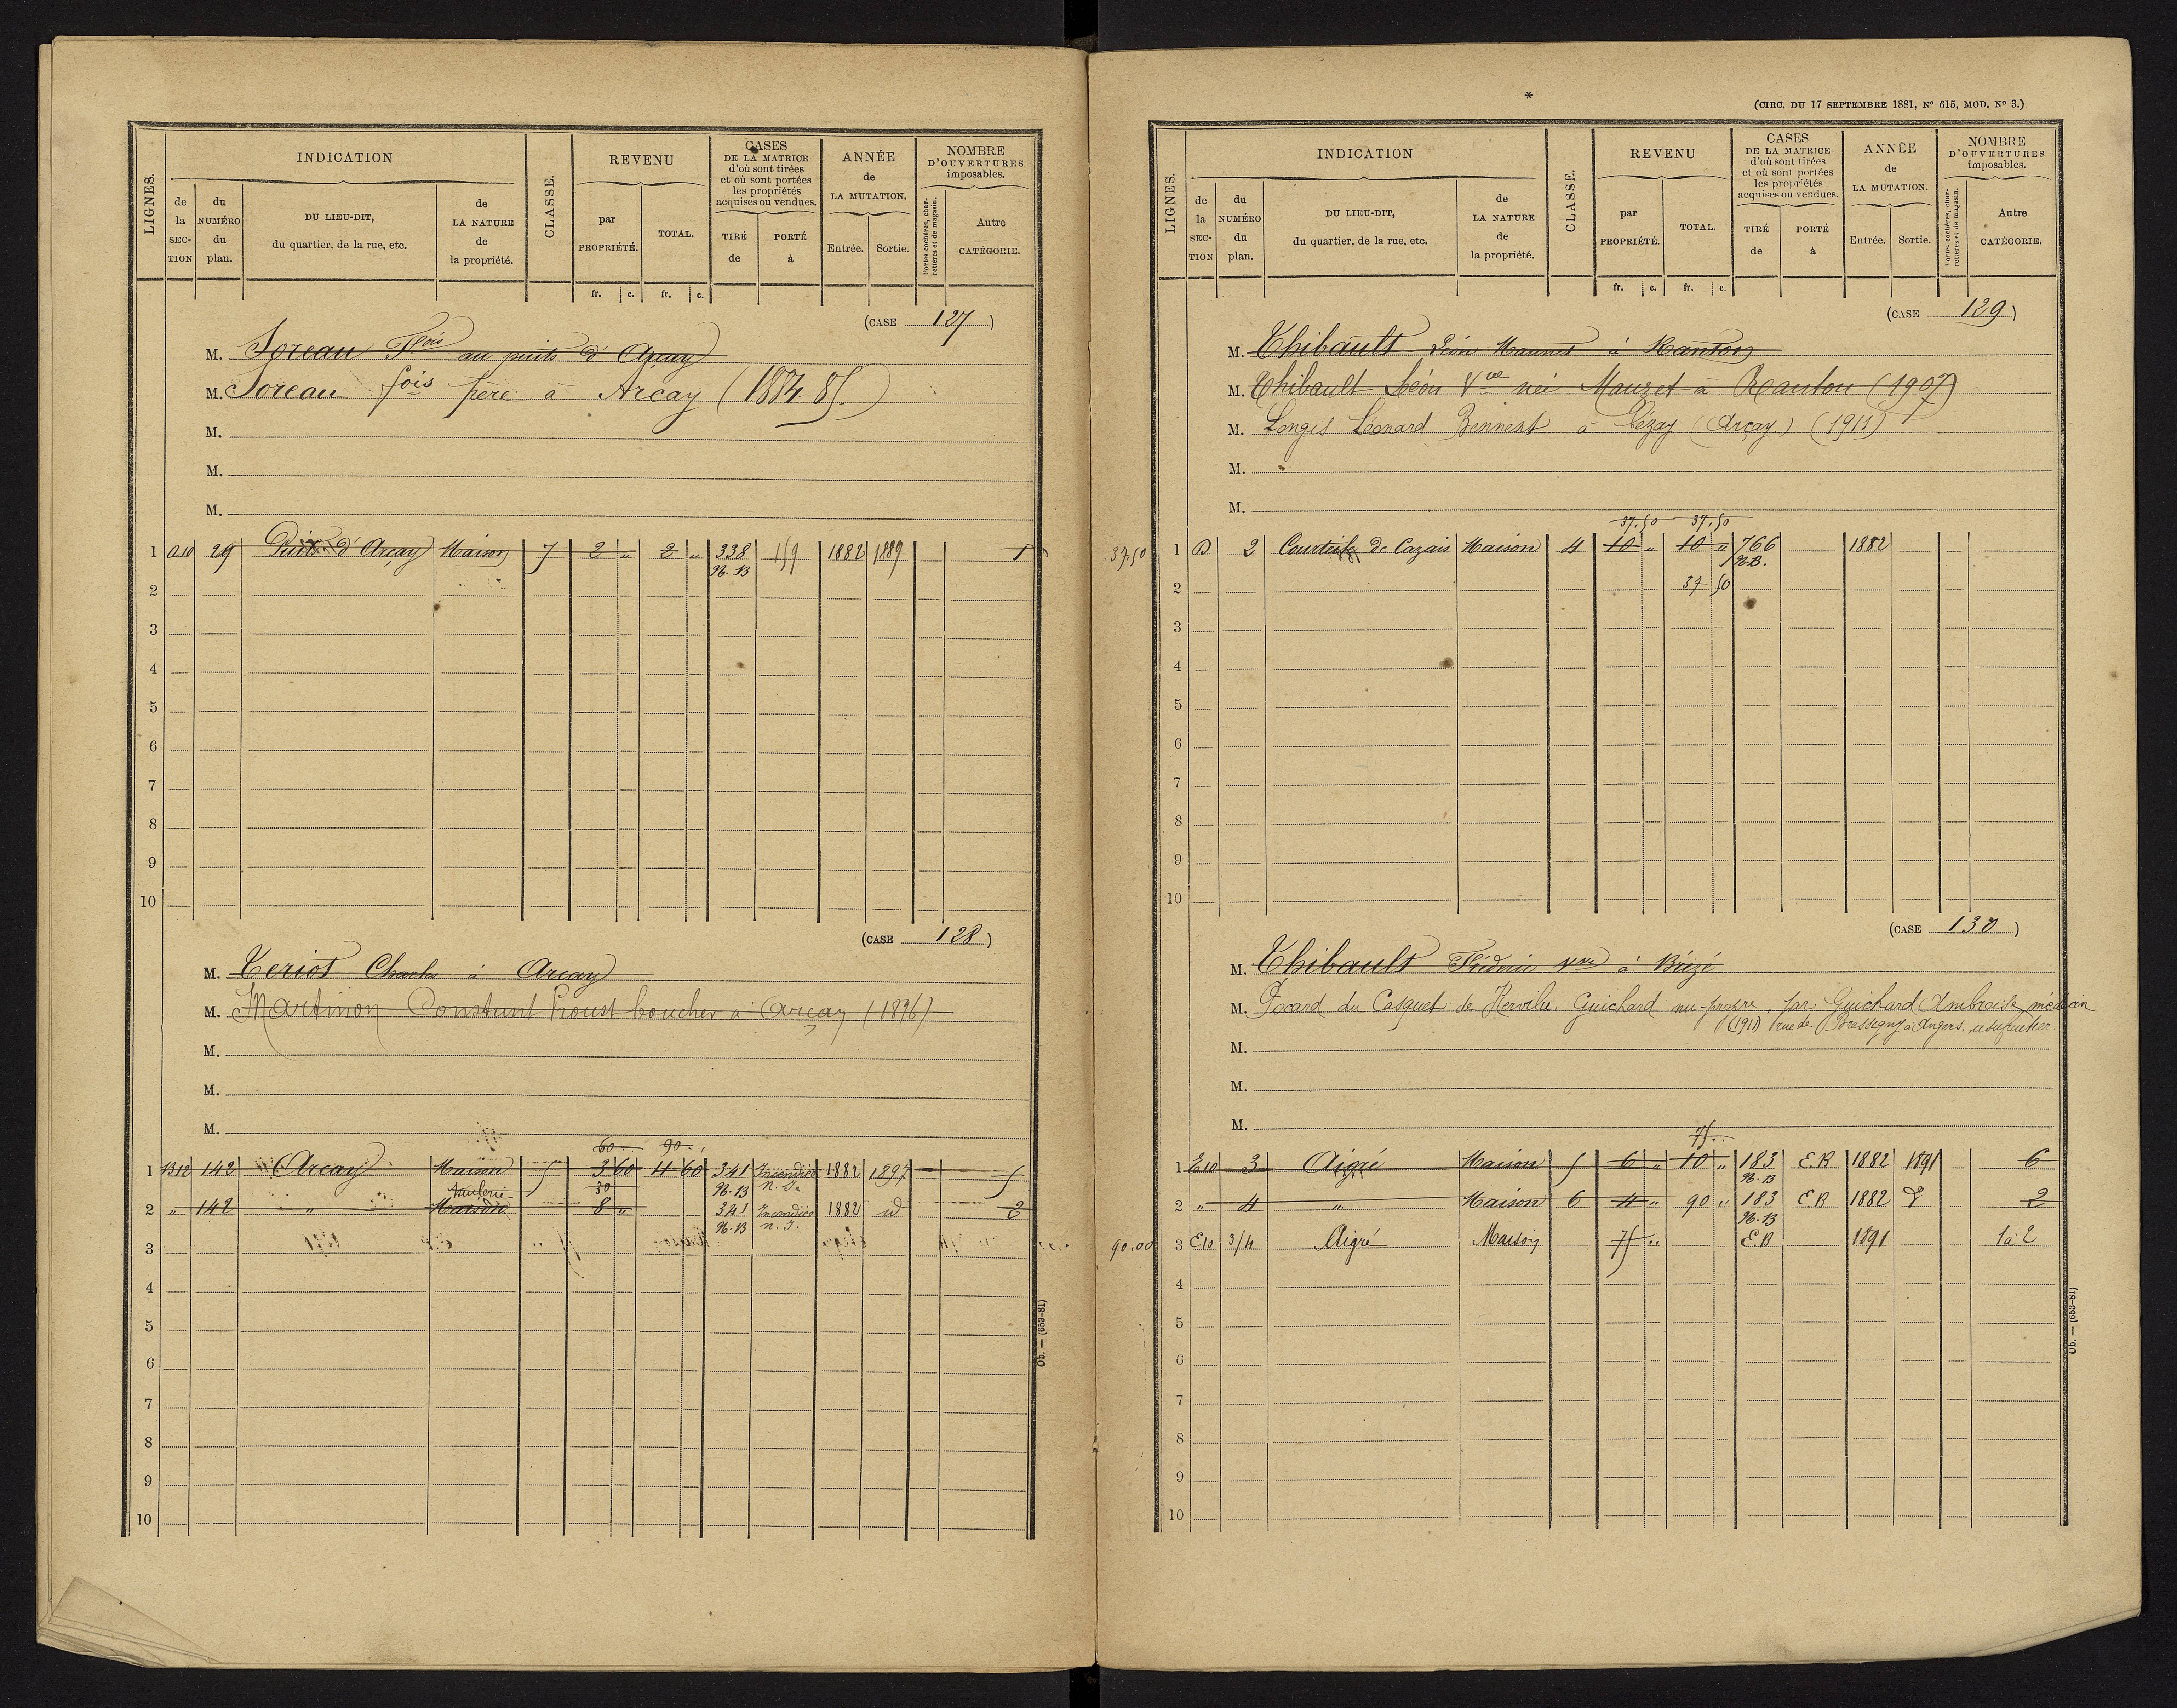 LIGNES.
INDICATION
de la SECTION
du NUMÉRO du plan.
DU LIEU-DIT, du quartier, de la rue, etc.
de LA NATURE de la propriété.
CLASSE.
REVENU
par PROPRIÉTÉ.
TOTAL.
fr. c. fr. c.
CASES DE LA MATRICE d'où sont tirées et où sont portées les propriétés acquises ou vendues.
TIRÉ de
PORTÉ à
ANNÉE de LA MUTATION.
Entrée. Sortie.
NOMBRE D'OUVERTURES imposables.
Portes cochères, charretières et de magasin.
Autre CATÉGORIE.
(CASE 127)
M. Soreau Fois au puits d'Arçay
M. Soreau fois père à Arçay (1884 85)
M.
M.
M.
1 A10 29 Puits d'Arçay Maison 7 2 " 2 " 338 159 1882 1889 1
N.B
2
3
4
5
6
7
8
9
10
(CASE 128)
M. Teriot Charles à Arçay
M. Martinon Constant Proust boucher à Arçay (1896)
M.
M.
M.
60 90
1 B12 142 Arçay Maison 5 3 60 11 60 341 Incendice 1882 1897 5
N.B
tuilerie 30
2 " 142 " Maison 8 " 341 Incendice 1882 d 2
N.B
3
4
5
6
7
8
9
10
Ob. — (653-81)
*
(CIRC. DU 17 SEPTEMBRE 1881, N° 615, MOD. N° 3.)
LIGNES.
INDICATION
de la SECTION
du NUMÉRO du plan.
DU LIEU-DIT, du quartier, de la rue, etc.
de LA NATURE de la propriété.
CLASSE.
REVENU
par PROPRIÉTÉ.
TOTAL.
fr. c. fr. c.
CASES DE LA MATRICE d'où sont tirées et où sont portées les propriétés acquises ou vendues.
TIRÉ de
PORTÉ à
ANNÉE de LA MUTATION.
Entrée. Sortie.
NOMBRE D'OUVERTURES imposables.
Portes cochères, charretières et de magasin.
Autre CATÉGORIE.
(CASE 129)
M. Thibault Léon à Ranton
M. Thibault Léon Vve née Mauzet à Ranton (1907)
M. Longis Léonard à Lézay (Arçay) (1911)
M.
M.
37,50 37,50
37.50 1 D 2 de Cazais Maison 4 10 " 10 " 766 1882
N.B.
2 37 50
3
4
5
6
7
8
9
10
(CASE 130)
M. Thibault Frédéric Vve à Brézé
M. Focard du Casquet de Guichard nu-propre. par Guichard Ambroise médecin
(1911) rue de Bressigny à Angers, usufruitier
M.
M.
M.
75
1 E10 3 Aigré Maison 5 6 " 10 " 183 E.B 1882 1891 6
N.B
2 " 4 " Maison 6 4 " 90 " 183 E.B 1882 2
N.B
90.00 3 E10 3/4 Aigré Maison 75 " E.B 1891 1 à 2
4
5
6
7
8
9
10
Ob. — (653-81)